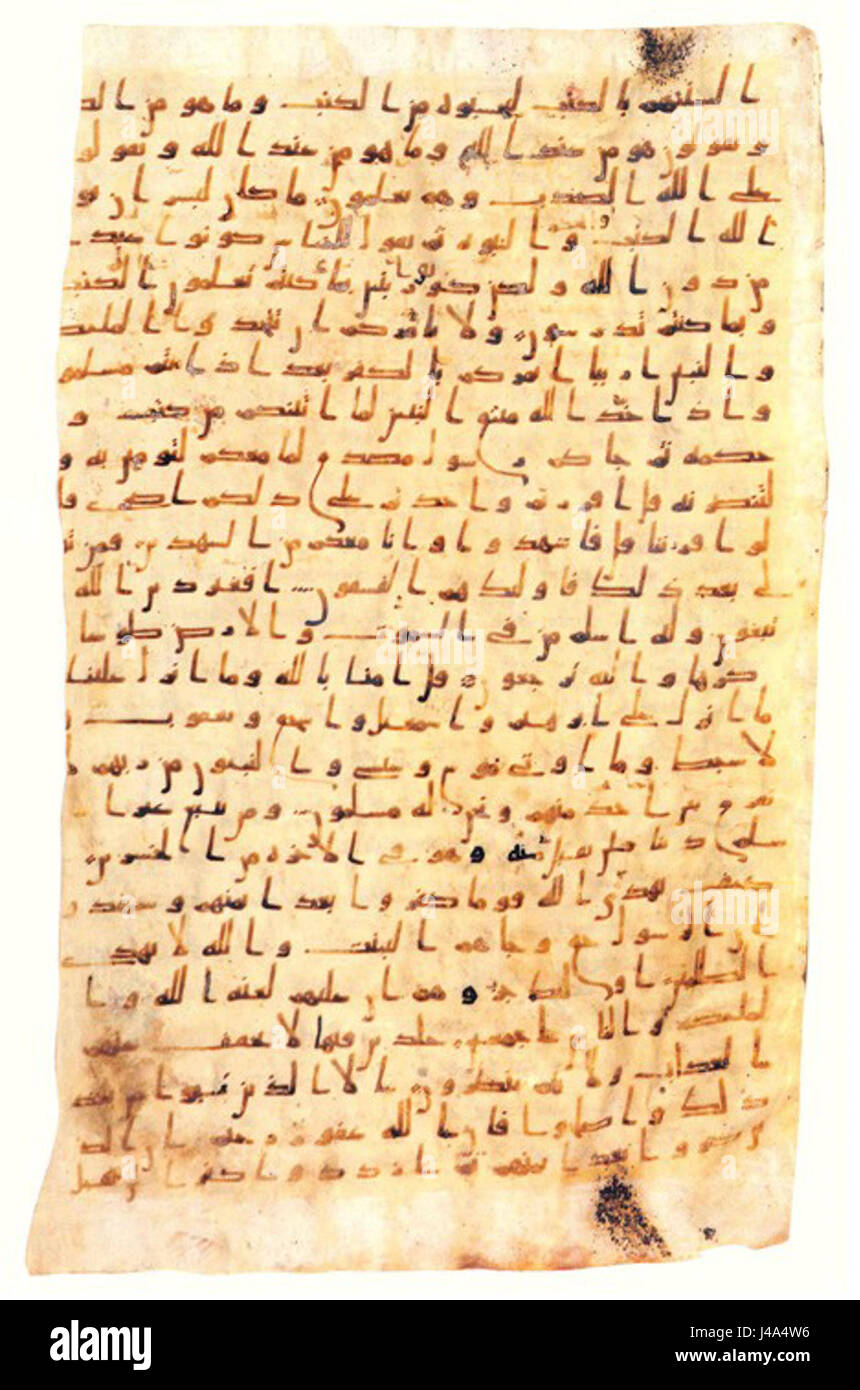 السنتهم بالكتب لتحسبوه من الكتب وما هو من الكـ
ويقولون هو من عند الله وما هو من عند الله ويقولو
على الله الكذب وهم يعلمون ما كان لبشر ان يو
الله الكتب والنبوه ثم يقول للناس كونوا عبد
من دون الله ولكن كونوا ربنين بما كنتم تعلمون الكتب
وبما كنتم تدرسون ولا يامركم ان تتخذوا الملئكـ
والنبين اربابا ايامركم بالكفر بعد اذ انتم مسلمو
واذ اخذ الله ميثق النبين لما اتيتكم من كتب و
حكمه ثم جاكم رسول مصدق لما معكم لتومنن به و
لتنصرنه قل اقررتم واخذتم على ذلكم اصري قا
لوا اقررنا قل فاشهدوا وانا معكم من الشهدين فمن تو
لى بعد ذلك فاولئك هم الفسقون افغير دين الله
تبغون وله اسلم من في السموت والارض طوعا
وكرها واليه ترجعون قل امنا بالله وما انزل علينا
وما انزل على ابرهيم واسمعيل واسحق ويعقوب و
الاسبط وما اوتي موسى وعيسى والنبيون من ربهم لا
نفرق بين احد منهم ونحن له مسلمون ومن يبتغ غير ا
لاسلم دينا فلن يقبل منه وهو في الاخره من الخسرين
كيف يهدي الله قوما كفروا بعد ايمنهم وشهدو
ان الرسول حق وجاهم البينت والله لا يهدي
الظلمين اولئك جزاوهم ان عليهم لعنه الله وا
لملئكه والناس اجمعين خلدين فيها لا يخفف عنهم
العذاب ولا هم ينظرون الا الذين تابوا من بعد
ذلك واصلحوا فان الله غفور رحيم ان الذ
كفروا بعد ايمنهم ثم ازدادوا كفرا لن تقبل
alamy
alamy
alamy
alamy
Image ID: J4A4W6
www.alamy.com